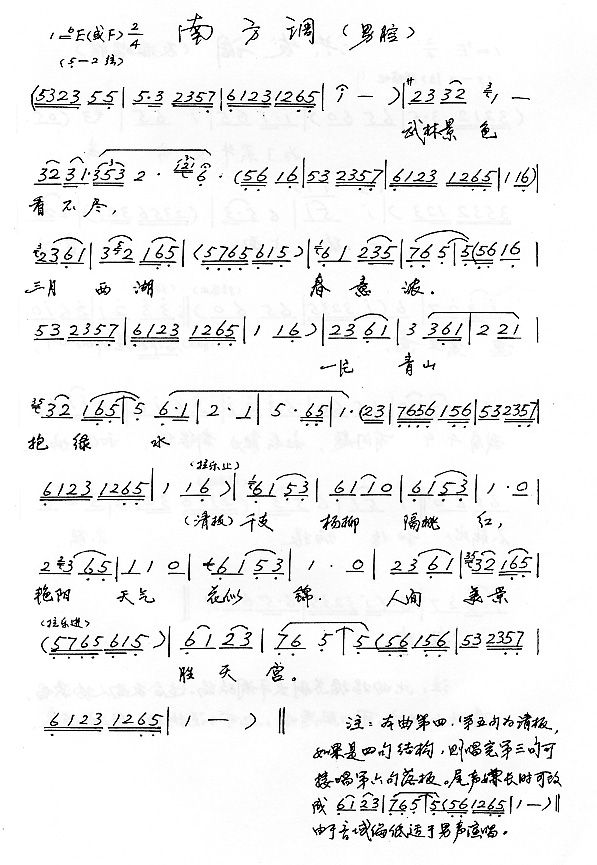 1=♭E(或F) 2/4 南方调(男腔)
(5—2弦)
(5323 55 | 5·3 2357 | 61231265 | i — ) | 23 32 1 —
武林景 色
32 31·353 2 · 6 · (56 16 | 53 2357 | 6123 1265 | 1 16)
看 不 尽,
2361 | 352 165 | (5765615) | 61 235 | 765 5(5616 |
三月 西 湖 春 意 浓.
53 2357 | 6123 1265 | 1 16 ) | 23 61 | 3 361 | 2 21 |
青山
32 165 5 6·1 | 2·1 | 5·65 | 1·(23 | 7656 156 | 532357 |
抱 绿 水
(拉乐止)
6123 1265 | 1 16 ) | 61 53 | 61 10 | 61 53 | 1·0 |
(清板) 千支 杨柳 隔桃 红,
2 3 65 | 1 1 0 | 61 53 | 1·0 | 23 61 | 32 165 |
艳阳 天气 花似 锦. 人间 美景
(拉乐进)
(5765615 ) | 61 23 | 76 5 5(56156 | 53 2357 |
胜 天 宫。
6123 1265 | 1 — ) ‖
注:本曲第四、第五句为清板,
如果是四句结构,则唱完第三句可
接唱第六句落板。尾声嫌长时可改
成 61 23 | 765 5(561265 | 1 — ) ‖
由于音域偏低适于男声演唱。